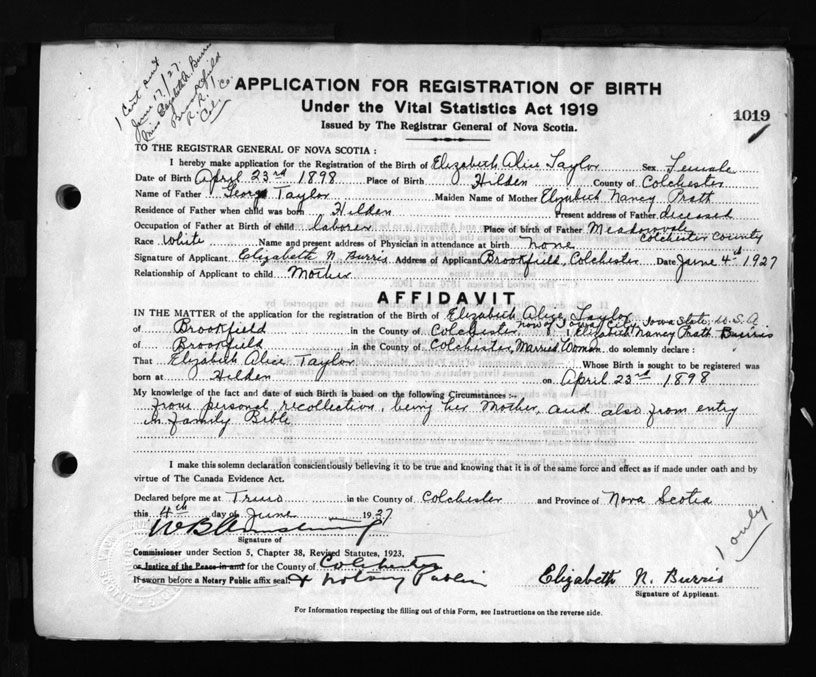 1 Cert sent
June 17/27.
Miss Elizabeth A. Burris
Brookfield
R.R. 1
Col. Co.
APPLICATION FOR REGISTRATION OF BIRTH
Under the Vital Statistics Act 1919
Issued by The Registrar General of Nova Scotia.
1019
TO THE REGISTRAR GENERAL OF NOVA SCOTIA :
I hereby make application for the Registration of the Birth of Elizabeth Alice Taylor Sex Female
Date of Birth April 23rd 1898 Place of Birth Hilden County of Colchester
Name of Father George Taylor Maiden Name of Mother Elizabeth Nancy Prath
Residence of Father when child was born Hilden Present address of Father deceased
Occupation of Father at Birth of child laborer Place of birth of Father Meadowvale Colchester County
Race White Name and present address of Physician in attendance at birth none
Signature of Applicant Elizabeth N. Burris Address of Applicant Brookfield, Colchester Date June 4th 1927
Relationship of Applicant to child Mother
AFFIDAVIT
IN THE MATTER of the application for the registration of Birth of Elizabeth Alice Taylor
of Brookfield in the County of Colchester, now of Iowa City, Iowa State, U.S.A
I Elizabeth Nancy Prath Burris
of Brookfield in the County of Colchester, Married Woman do solemnly declare :
That Elizabeth Alice Taylor Whose Birth is sought to be registered was
born at Hilden on April 23rd 1898
My knowledge of the fact and date of such Birth is based on the following Circumstances :-
From personal recollection, being her Mother, and also from entry
in family Bible
I make this solemn declaration conscientiously believing it to be true and knowing that it is of the same force and effect as if made under oath and by
virtue of The Canada Evidence Act.
Declared before me at Truro in the County of Colchester and Province of Nova Scotia
this 4th day of June 1927
W B Armstrong
Signature of
1 only
Commissioner under Section 5, Chapter 38, Revised Statutes, 1923,
or Justice of the Peace in and for the County of Colchester
If sworn before a Notary Public affix seal. & Notary Public
Elizabeth N. Burris
Signature of Applicant.
For Information respecting the filling out of this Form, see Instructions on the reverse side.